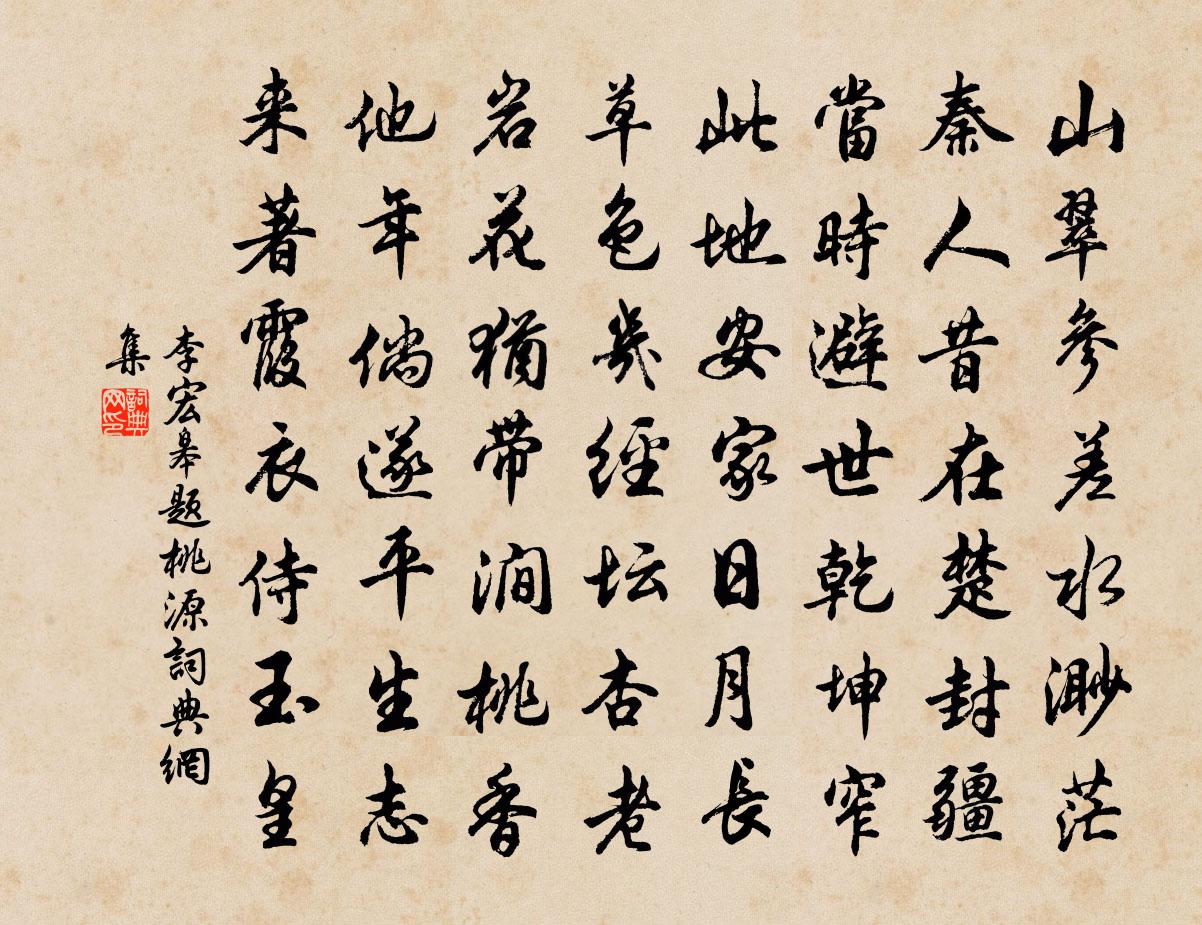 山翠參差水渺茫
秦人昔在楚封疆
當時避世乾坤窄
此地安家日月長
草色幾經坛杏老
岩花猶带澗桃香
他年倘遂平生志
来著霞衣侍玉皇
李宏皋題桃源詞典網
集
詞典
网印